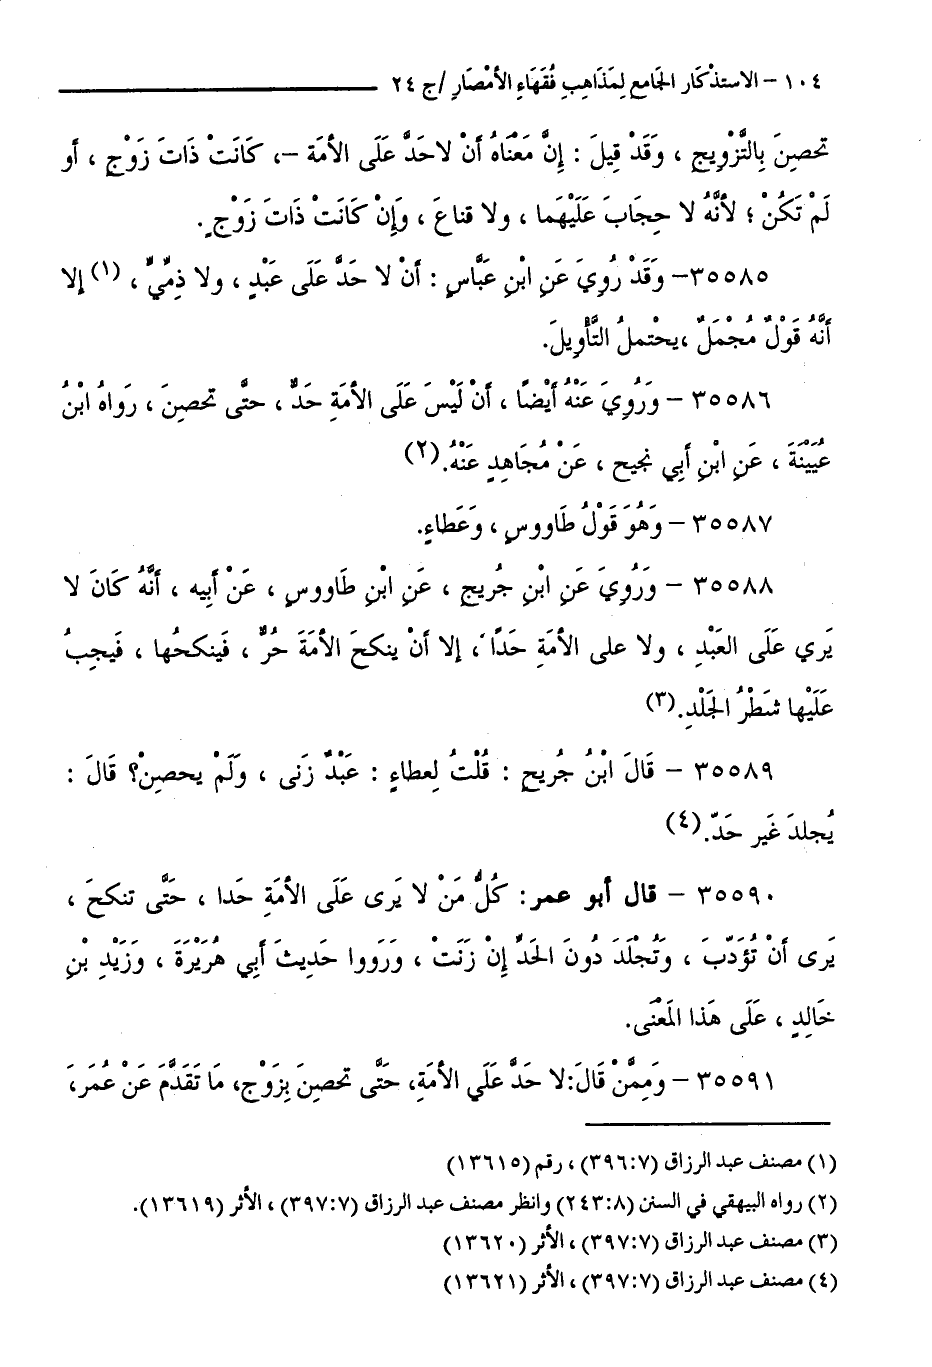 ١٠٤ – الاستذْكَار الجَامع لِمَذَاهِبِ فُقَهَاءِ الأَمْصَارِ /ج ٢٤
تحصِنَ بِالتَّزْوِيجِ ، وَقَدْ قِيلَ : إِنَّ مَعْنَاهُ أَنْ لاحَدَّ عَلَى الأَمَة –، كَانَتْ ذَاتَ زَوْجٍ ، أو
لَمْ تَكُنْ ؛ لأَنَّهُ لا حِجَابَ عَلَيْهَما ، ولا قناعَ ، وَإِنْ كَانَتْ ذَاتَ زَوْجٍ.
٣٥٥٨٥– وَقَدْ رُوِيَ عَنِ ابْنِ عَبَّاسٍ : أَنْ لا حَدَّ عَلَى عَبْدٍ ، ولا ذِمِّيٍّ ، (١) إِلا
أَنَّهُ قَوْلٌ مُجْمَلٌ ،يحْتملُ التَّأْوِيلَ.
٣٥٥٨٦ – وَرُوِيَ عَنْهُ أَيْضًا ، أَنْ لَيْسَ عَلَى الأَمَةِ حَدٌّ ، حتَّى تحصِنَ ، رَواهُ ابْنُ
عُيَيْنَةَ ، عَنِ ابْنِ أَبِي نجيح ، عَنْ مُجَاهِدٍ عَنْهُ.(٢)
٣٥٥٨٧ – وَهُوَ قَوْلُ طَاووسٍ ، وَعَطاءٍ.
٣٥٥٨٨ – وَرُوِيَ عَنِ ابْنِ جُريجٍ ، عَنِ ابْنِ طَاووسٍ ، عَنْ أَبِيه ، أَنَّهُ كَانَ لا
يَرَي عَلَى العَبْدِ ، ولا على الأَمَةِ حَدًا ، إِلا أَنْ ينكحَ الأَمَةَ حُرٌّ ، فَينكحُها ، فَيجبُ
عَلَيْها شَطْرُ الجَلْدِ.(٣)
٣٥٥٨٩ – قَالَ ابْنُ جُريج : قُلْتُ لِعطاءٍ : عَبْدٌ زَنى ، وَلَمْ يحصِنْ؟ قَالَ :
يُجلدَ غَير حَدّ.(٤)
٣٥٥٩٠ – قال أبو عمر: كُلُّ مَنْ لا يَرى عَلَى الأَمَةِ حَدا ، حَتَّى تنكحَ ،
يَرَى أَنْ تُؤَدّبَ ، وَتُجْلَدَ دُونَ الحَدِّ إِنْ زَنَتْ ، وَرَووا حَدِيثَ أَبِي هُرَيْرَةَ ، وَزَيْدِ بْنِ
خَالِدٍ ، عَلَى هَذا المَعْنَى.
٣٥٥٩١ – وَمِمَّنْ قَالَ:لا حَدَّ عَلَي الأَمَةِ، حَتَّى تحصِنَ بِزَوْجٍ، مَا تَقَدَّمَ عَنْ عُمَرَ،
(١) مصنف عبد الرزاق (٣٩٦:٧) ، رقم (١٣٦١٥)
(٢) رواه البيهقي في السنن (٢٤٣:٨) وانظر مصنف عبد الرزاق (٣٩٧:٧) ، الأثر (١٣٦١٩).
(٣) مصنف عبد الرزاق (٣٩٧:٧) ، الأثر (١٣٦٢٠)
(٤) مصنف عبد الرزاق (٣٩٧:٧) ، الأثر (١٣٦٢١)